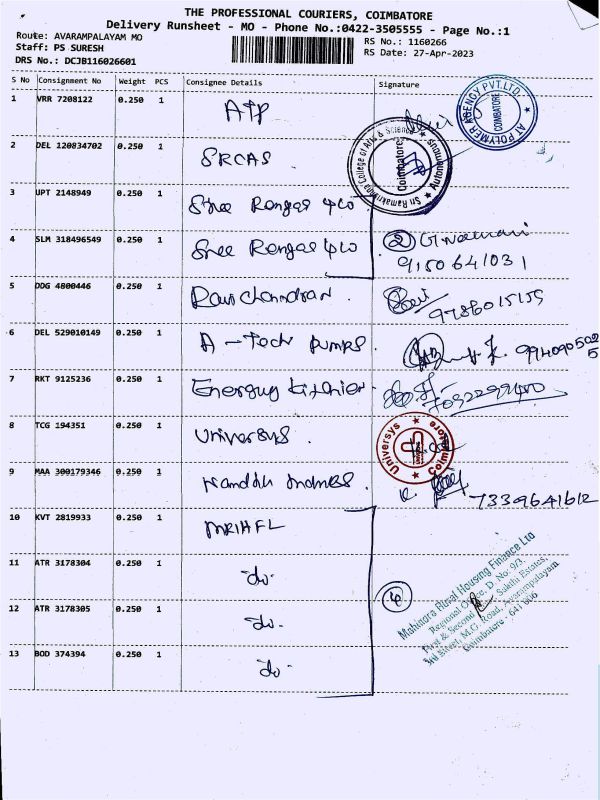 THE PROFESSIONAL COURIERS, COIMBATORE
Delivery Runsheet - MO - Phone No.:0422-3505555 - Page No.:1
Route: AVARAMPALAYAM MO
RS No.: 1160266
Staff: PS SURESH
RS Date: 27-Apr-2023
DRS No.: DCJB116026601
S No Consignment No Weight PCS Consignee Details Signature
1 VRR 7208122 0.250 1 AIP
AI POLYMER AGENCY PVT.LTD. COIMBATORE
2 DEL 120834702 0.250 1 SRCAS
Sri Ramakrishna College of Arts & Science Autonomous Coimbatore
3 UPT 2148949 0.250 1 Shree Rengas 4co
4 SLM 318496549 0.250 1 Shree Rengas 4co ②
9150641031
5 DDG 4800446 0.250 1 Ravichandran
9786015155
6 DEL 529010149 0.250 1 A-Tech pumps. 9940905025
7 RKT 9125236 0.250 1 Energy
7092299400
8 TCG 194351 0.250 1 Universys
Universys Coimbatore
9 MAA 300179346 0.250 1 Nandhu
7339641612
10 KVT 2819933 0.250 1 MRHFL
11 ATR 3178304 0.250 1 -do-
12 ATR 3178305 0.250 1 -do-
④
Mahindra Rural Housing Finance Ltd
Regional Office, D. No. 9/3,
First & Second Sakthi Estates,
3rd Street, M.G. Road, Avarampalayam
Coimbatore - 641 006
13 BOD 374394 0.250 1 -do-